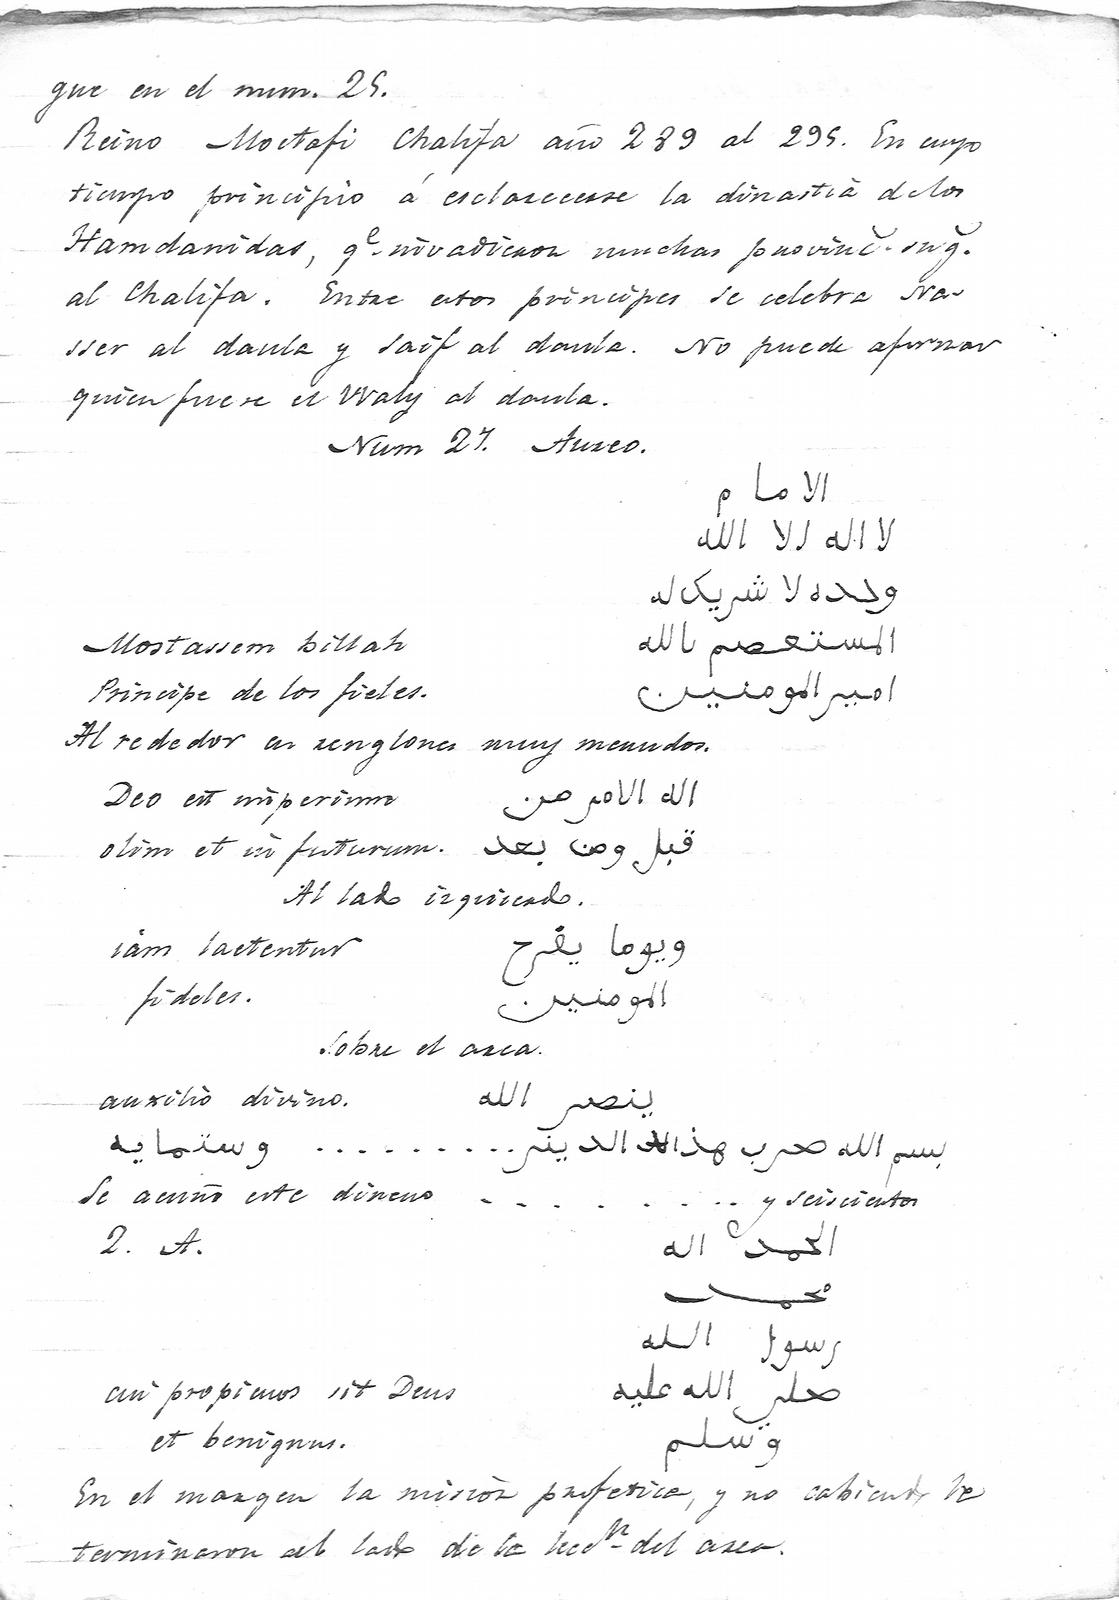 gue en el num. 25.
Reino Moctafi Chalifa año 289 al 295. En cuyo
tiempo principio á esclarecerse la dinastia de los
Hamdanidas, qe. invadieron muchas provinc. sug.
al Chalifa. Entre estos principes se celebra Na-
sser al daula y Saif al daula. No puede afirmar
quien fuese el Waly al daula.
Num 27. Aureo.
الامام
لا اله الا الله
وحده لا شريك له
Mostassem billah المستعصم بالله
Principe de los fieles. امير المومنين
Al rededor en renglones muy menudos.
Deo est imperium الله الامر من
olim et in futurum. قبل ومن بعد
Al lado izquierdo.
iam laetentur ويوما يفرح
fideles. المومنين
Sobre el area.
auxilio divino. ينصر الله
بسم الله ضرب هذا الدينر .......... وستمايه
Se acuño este dinero - . . . . . . . y seiscientos
2. A. الحمد الله
محمد
رسول الله
cui propicius sit Deus صلى الله عليه
et benignus. وسلم
En el margen la mision profetica, y no cabiendo le
terminaron al lado de la leccn. del area.